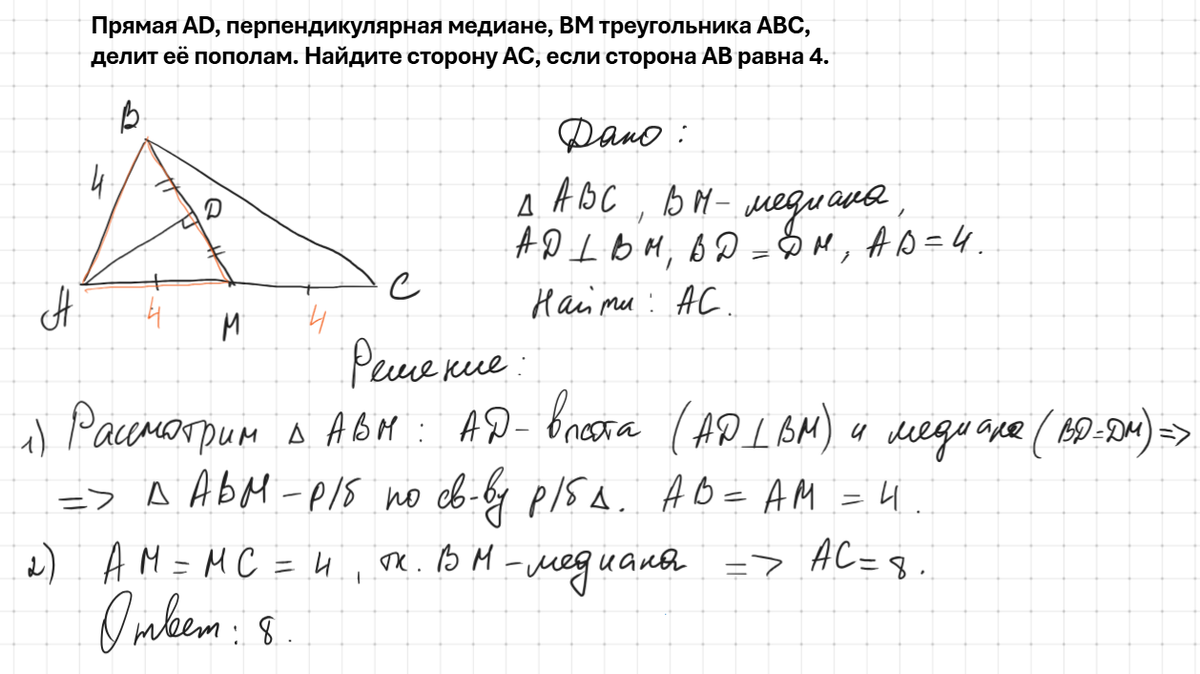 Прямая AD, перпендикулярная медиане, ВМ треугольника АВС,
делит её пополам. Найдите сторону АС, если сторона АВ равна 4.
B
4
D
A
4
M
4
C
Дано:
Δ ABC, BM - медиана,
AD ⊥ BM, BD = DM, AB = 4.
Найти: AC.
Решение:
1) Рассмотрим Δ ABM: AD - высота (AD ⊥ BM) и медиана (BD = DM) =>
=> Δ ABM - р/б по св-ву р/б Δ. AB = AM = 4.
2) AM = MC = 4, тк. BM - медиана => AC = 8.
Ответ: 8.